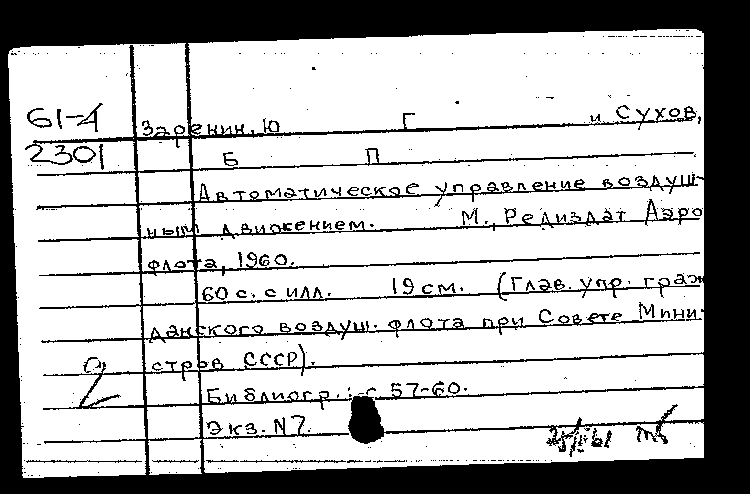 61-4 Заренин, Ю Г и Сухов,
2301 Б П
Автоматическое управление воздуш-
ным движением. М., Редиздат Аэро
флота, 1960.
60 с. с илл. 19 см. (Глав. упр. граж
данского воздуш. флота при Совете Мини-
стров СССР).
2
Библиогр.: с 57-60.
Экз. N7.